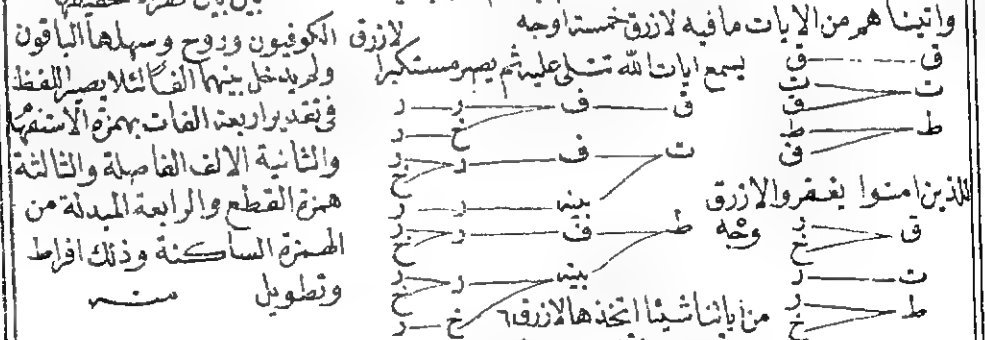 واتيناهم من الايات ما فيه لازرق خمسة اوجه
ق ق
ت ت ق
ط ط ق
للذين امنوا يغفروا لازرق
وجه
ق ر خ
ت ر
ط ر خ
يسمع ايات الله تتلى عليه ثم يصر مستكبرا لازرق
ق ف ر ر
خ ر
ت ف ر ر خ
بينه ر ر
ط ف ر ر خ
بينه ر ر خ
خ ر
من اياتنا شيئا اتخذها لازرق ٦
الكوفيون وروح وسهلها الباقون
ولم يدخل بينهما الفا لئلا يصير اللفظ
فى تقدير اربعة الفات بهمزة الاستفها
والثانية الالف الفاصلة والثالثة
همزة القطع والرابعة المبدلة من
الهمزة الساكنة وذلك افراط
وتطويل منه